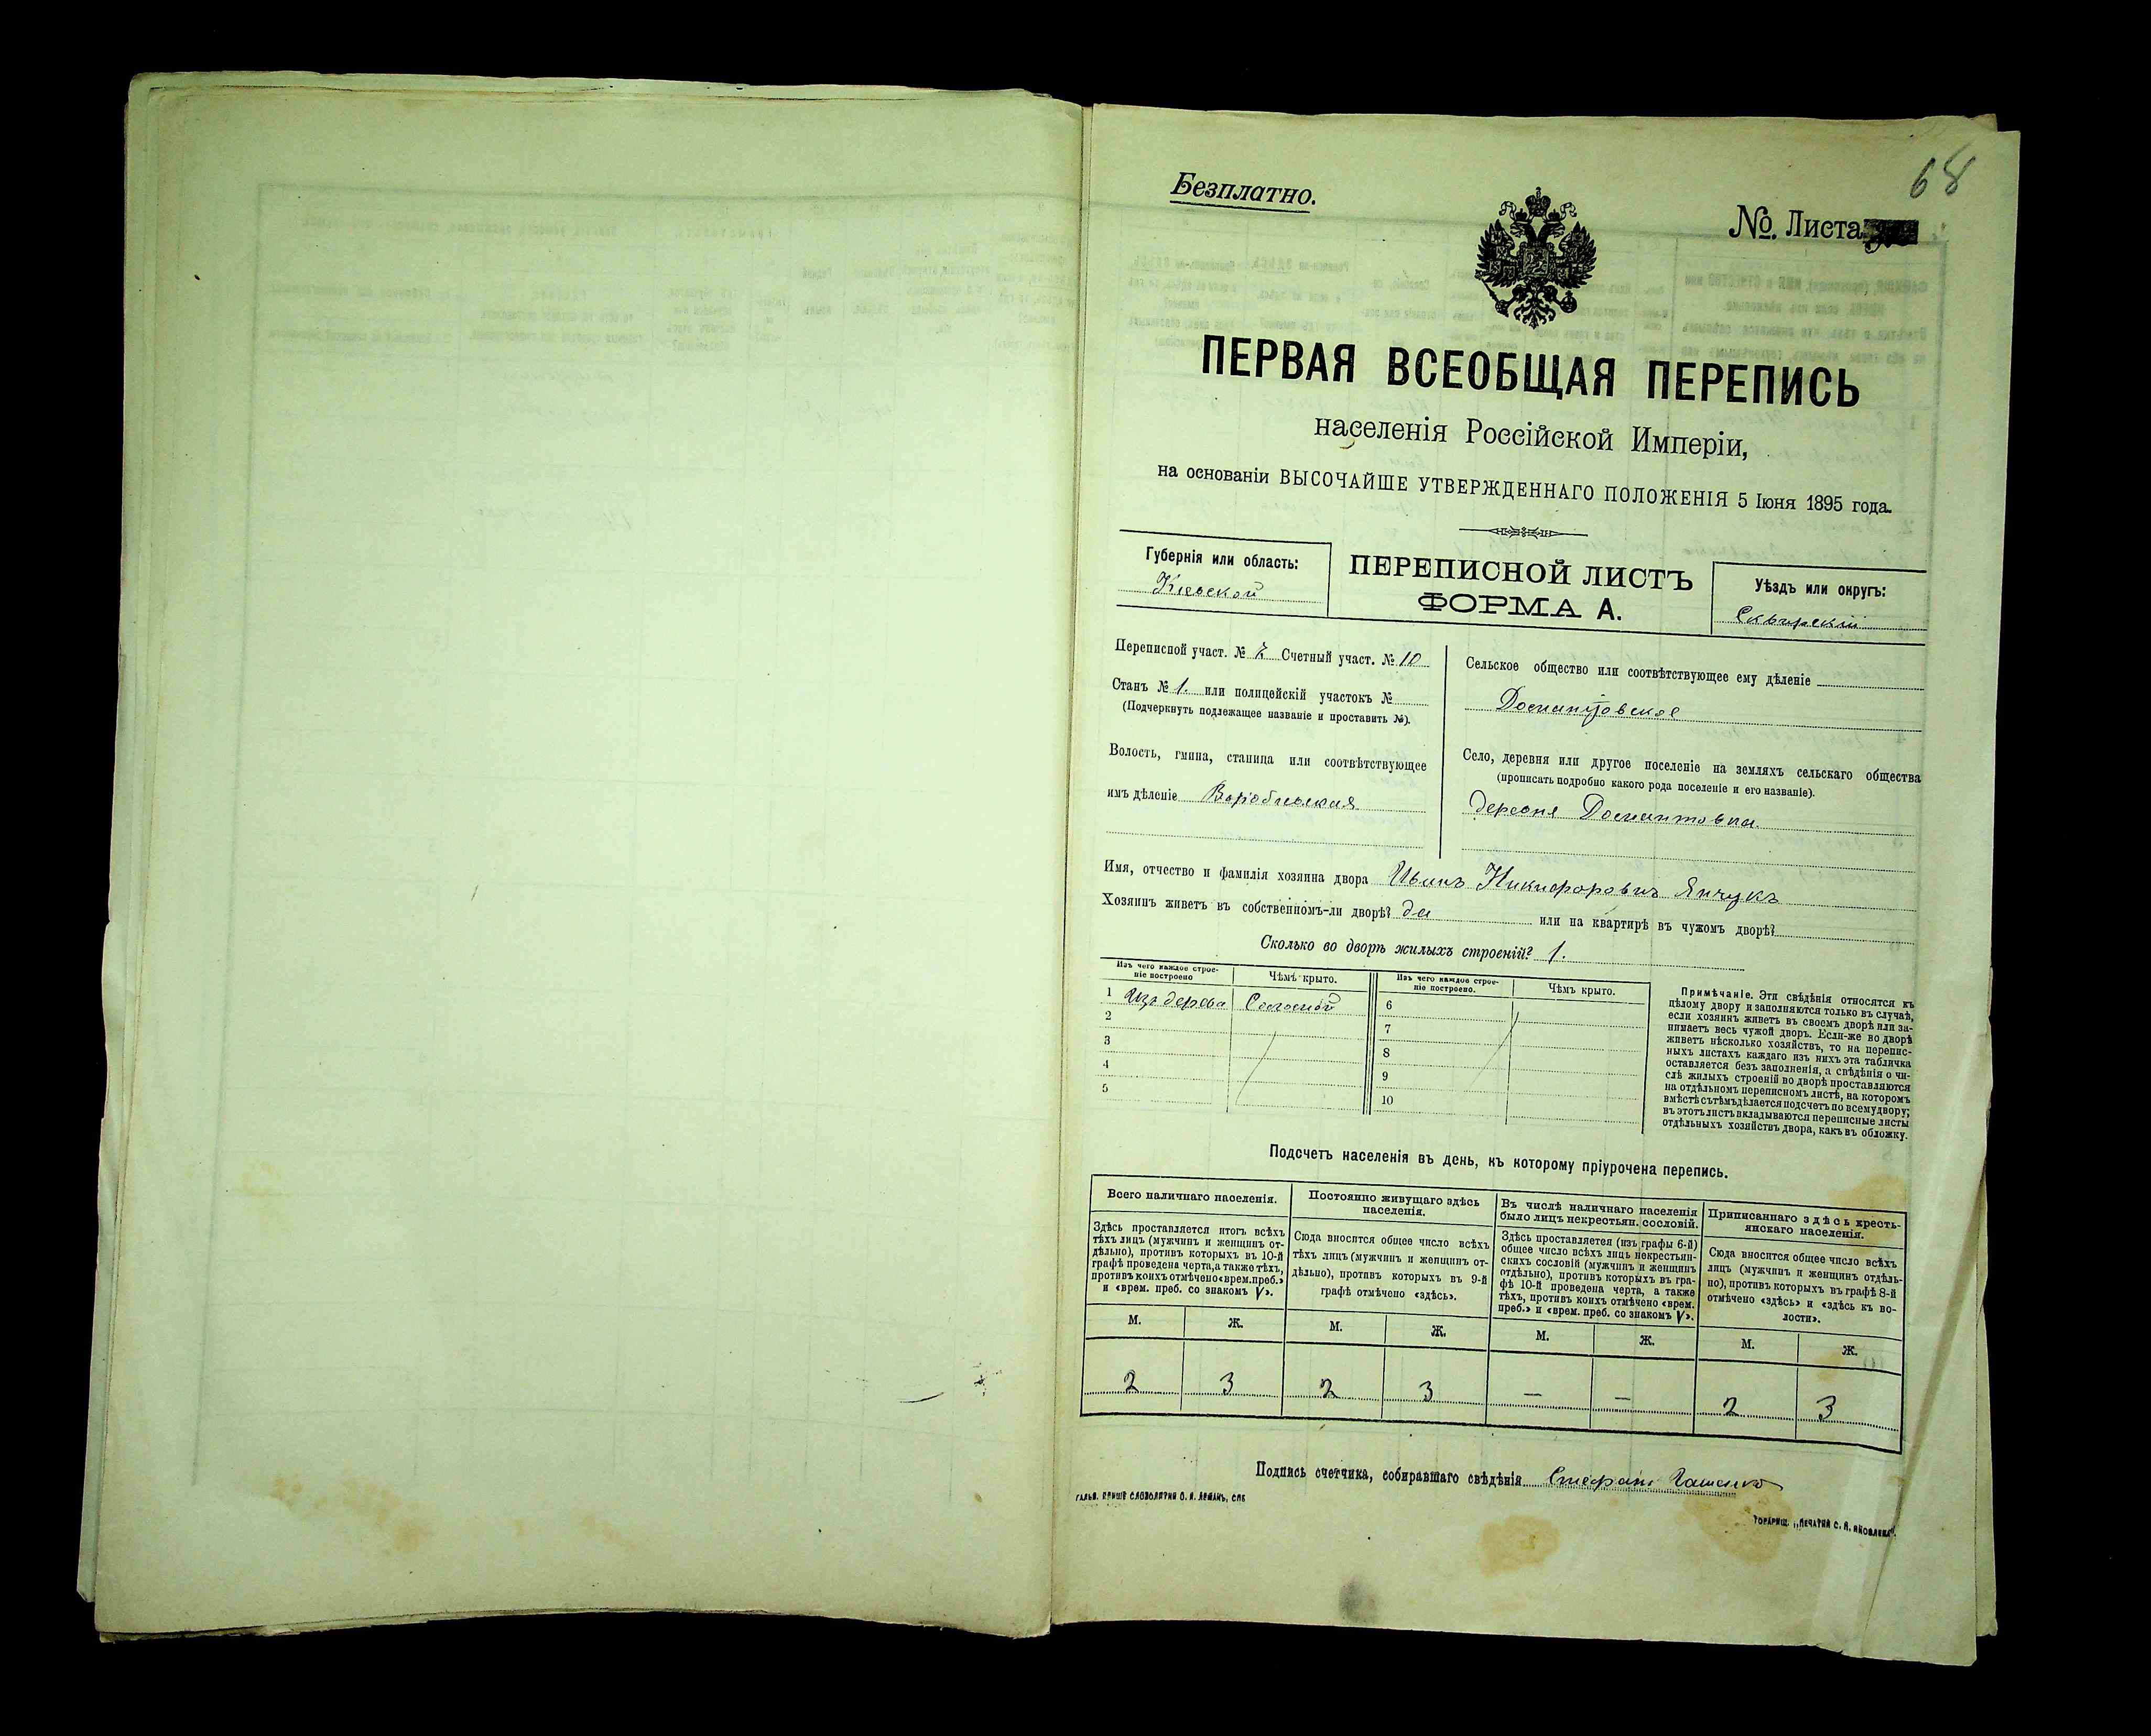 68
Безплатно.
№. Листа
ПЕРВАЯ ВСЕОБЩАЯ ПЕРЕПИСЬ
населенія Россійской Имперіи,
на основаніи ВЫСОЧАЙШЕ УТВЕРЖДЕННАГО ПОЛОЖЕНІЯ 5 Іюня 1895 года.
Губернія или область:
Кіевской
ПЕРЕПИСНОЙ ЛИСТЪ
ФОРМА А.
Уѣздъ или округъ:
Сквирскій
Переписной участ. № 2 Счетный участ. № 10
Станъ № 1. или полицейскій участокъ №
(Подчеркнуть подлежащее названіе и проставить №).
Волость, гмина, станица или соотвѣтствующее
имъ дѣленіе
Сельское общество или соотвѣтствующее ему дѣленіе
Село, деревня или другое поселеніе на земляхъ сельскаго общества
(прописать подробно какого рода поселеніе и его названіе).
деревня
Имя, отчество и фамилія хозяина двора Иванъ Никифоровичъ Янчукъ
Хозяинъ живетъ въ собственномъ-ли дворѣ? да или на квартирѣ въ чужомъ дворѣ?
Сколько во дворѣ жилыхъ строеній? 1.
Изъ чего каждое строе-
ніе построено
Чѣмъ крыто.
Изъ чего каждое строе-
ніе построено.
Чѣмъ крыто.
1 Изъ дерева Соломой
2
3
4
5
6
7
8
9
10
Примѣчаніе. Эти свѣдѣнія относятся къ
цѣлому двору и заполняются только въ случаѣ,
если хозяинъ живетъ въ своемъ дворѣ или за-
нимаетъ весь чужой дворъ. Если-же во дворѣ
живетъ нѣсколько хозяйствъ, то на перепис-
ныхъ листахъ каждаго изъ нихъ эта табличка
оставляется безъ заполненія, а свѣдѣнія о чи-
слѣ жилыхъ строеній во дворѣ проставляются
на отдѣльномъ переписномъ листѣ, на которомъ
вмѣстѣ съ тѣмъ дѣлается подсчетъ по всему двору;
въ этотъ листъ вкладываются переписные листы
отдѣльныхъ хозяйствъ двора, какъ въ обложку.
Подсчетъ населенія въ день, къ которому пріурочена перепись.
Всего наличнаго населенія.
Здѣсь проставляется итогъ всѣхъ
тѣхъ лицъ (мужчинъ и женщинъ от-
дѣльно), противъ которыхъ въ 10-й
графѣ проведена черта, а также тѣхъ,
противъ коихъ отмѣчено «врем. преб.»
и «врем. преб. со знакомъ V».
Постоянно живущаго здѣсь
населенія.
Сюда вносится общее число всѣхъ
тѣхъ лицъ (мужчинъ и женщинъ от-
дѣльно), противъ которыхъ въ 9-й
графѣ отмѣчено «здѣсь».
Въ числѣ наличнаго населенія
было лицъ некрестьян. сословій.
Здѣсь проставляется (изъ графы 6-й)
общее число всѣхъ лицъ некрестьян-
скихъ сословій (мужчинъ и женщинъ
отдѣльно), противъ которыхъ въ гра-
фѣ 10-й проведена черта, а также
тѣхъ, противъ коихъ отмѣчено «врем.
преб.» и «врем. преб. со знакомъ V».
Приписаннаго здѣсь кресть-
янскаго населенія.
Сюда вносится общее число всѣхъ
лицъ (мужчинъ и женщинъ отдѣль-
но), противъ которыхъ въ графѣ 8-й
отмѣчено «здѣсь» и «здѣсь къ во-
лости».
М. Ж. М. Ж. М. Ж. М. Ж.
2 3 2 3 — — 2 3
Подпись счетчика, собиравшаго свѣдѣнія
ГАЛЬВ. КЛИШЕ СЛОВОЛИТНИ О. И. ЛЕМАНЪ, СПБ
ТОВАРИЩ. „ПЕЧАТНЯ С. П. ЯКОВЛЕВА".